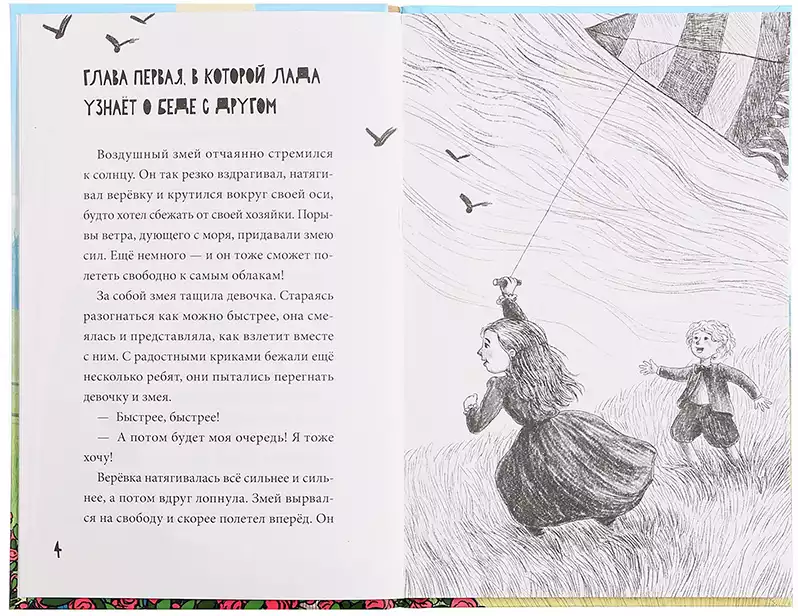 ГЛАВА ПЕРВАЯ, В КОТОРОЙ ЛАДА
УЗНАЁТ О БЕДЕ С ДРУГОМ
Воздушный змей отчаянно стремился
к солнцу. Он так резко вздрагивал, натяги-
вал верёвку и крутился вокруг своей оси,
будто хотел сбежать от своей хозяйки. Поры-
вы ветра, дующего с моря, придавали змею
сил. Ещё немного — и он тоже сможет по-
лететь свободно к самым облакам!
За собой змея тащила девочка. Стараясь
разогнаться как можно быстрее, она сме-
ялась и представляла, как взлетит вместе
с ним. С радостными криками бежали ещё
несколько ребят, они пытались перегнать
девочку и змея.
— Быстрее, быстрее!
— А потом будет моя очередь! Я тоже
хочу!
Верёвка натягивалась всё сильнее и силь-
нее, а потом вдруг лопнула. Змей вырвал-
ся на свободу и скорее полетел вперёд. Он
4